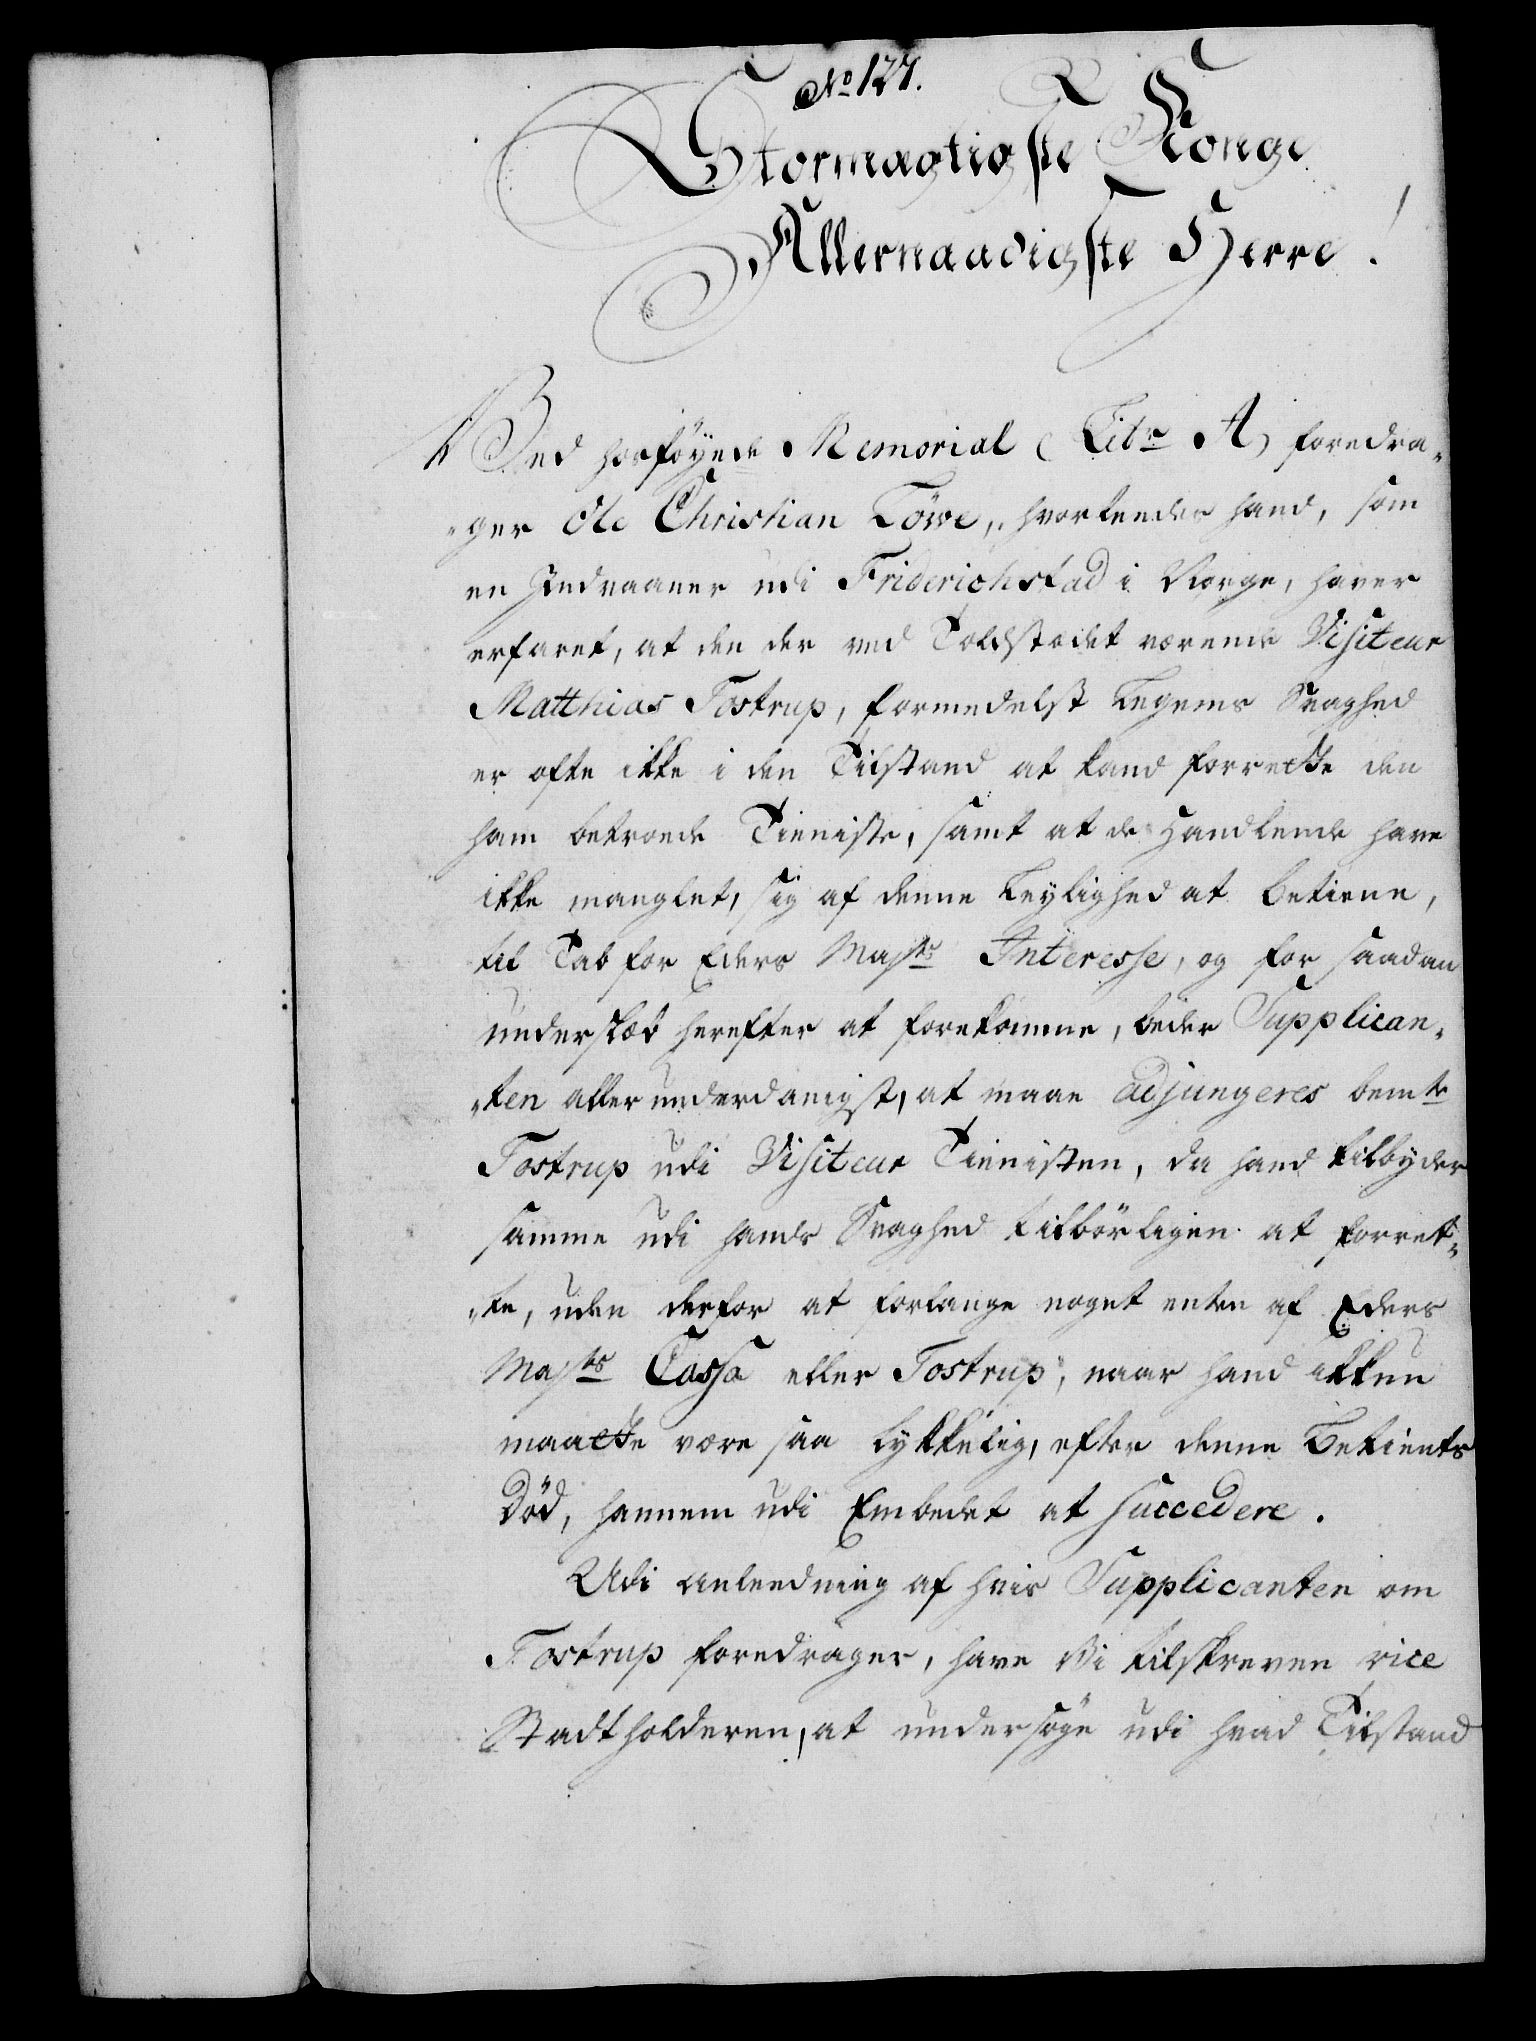 No 127.
Stormægtigste Konge
Allernaadigste Herre!
Ved hosføyede Memorial (Litr A) foredra„
„ger Ole Christian Löwe, hvorledes hand, som
en Indvaaner udi Friderichstad i Norge, haver
erfaret, at den der ved Toldstædet værende Visiteur
Matthias Tostrup, formedelst Legems Svaghed
er ofte ikke i den Tilstand at kand forrette den
ham betroede Tieniste, samt at de Handlende have
ikke manglet, sig af denne Leylighed at betiene,
til Tab for Eders Maysts Interesse, og for saadan
Underslæb herefter at forekomme, beder Supplican„
„ten allerunderdanigst, at maae adjungeres bemte
Tostrup udi Visiteur Tienisten, da hand tilbyder
samme udi hands Svaghed tilbörligen at forret„
„te, uden derfor at forlange noget enten af Eders
Maysts Cassa eller Tostrup, naar hand ikkun
maatte være saa lykkelig, efter denne Betients
Död, hannem udi Embedet at succedere.
Udi Anledning af hvis Supplicanten om
Tostrup foredrager, have Vi tilskreven vice
Stadtholderen, at undersøge udi hvad Tilstand